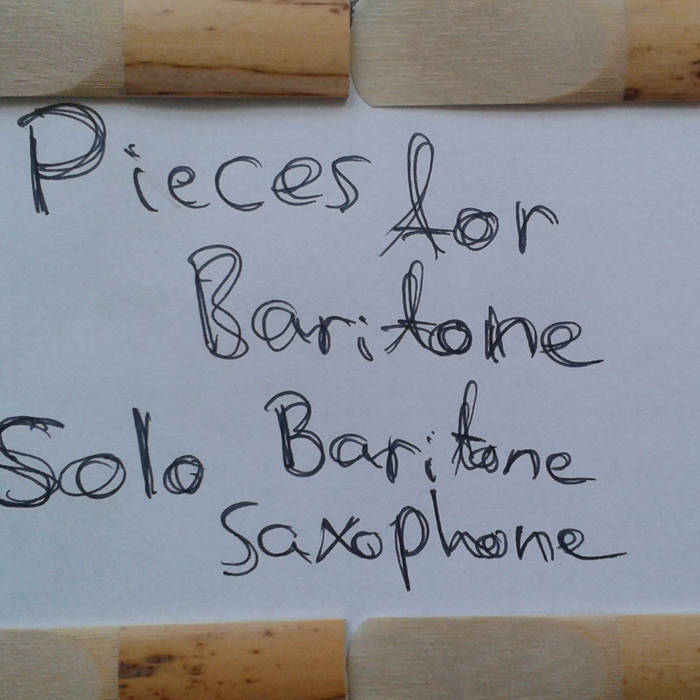 Pieces for
Baritone
Solo Baritone
Saxophone